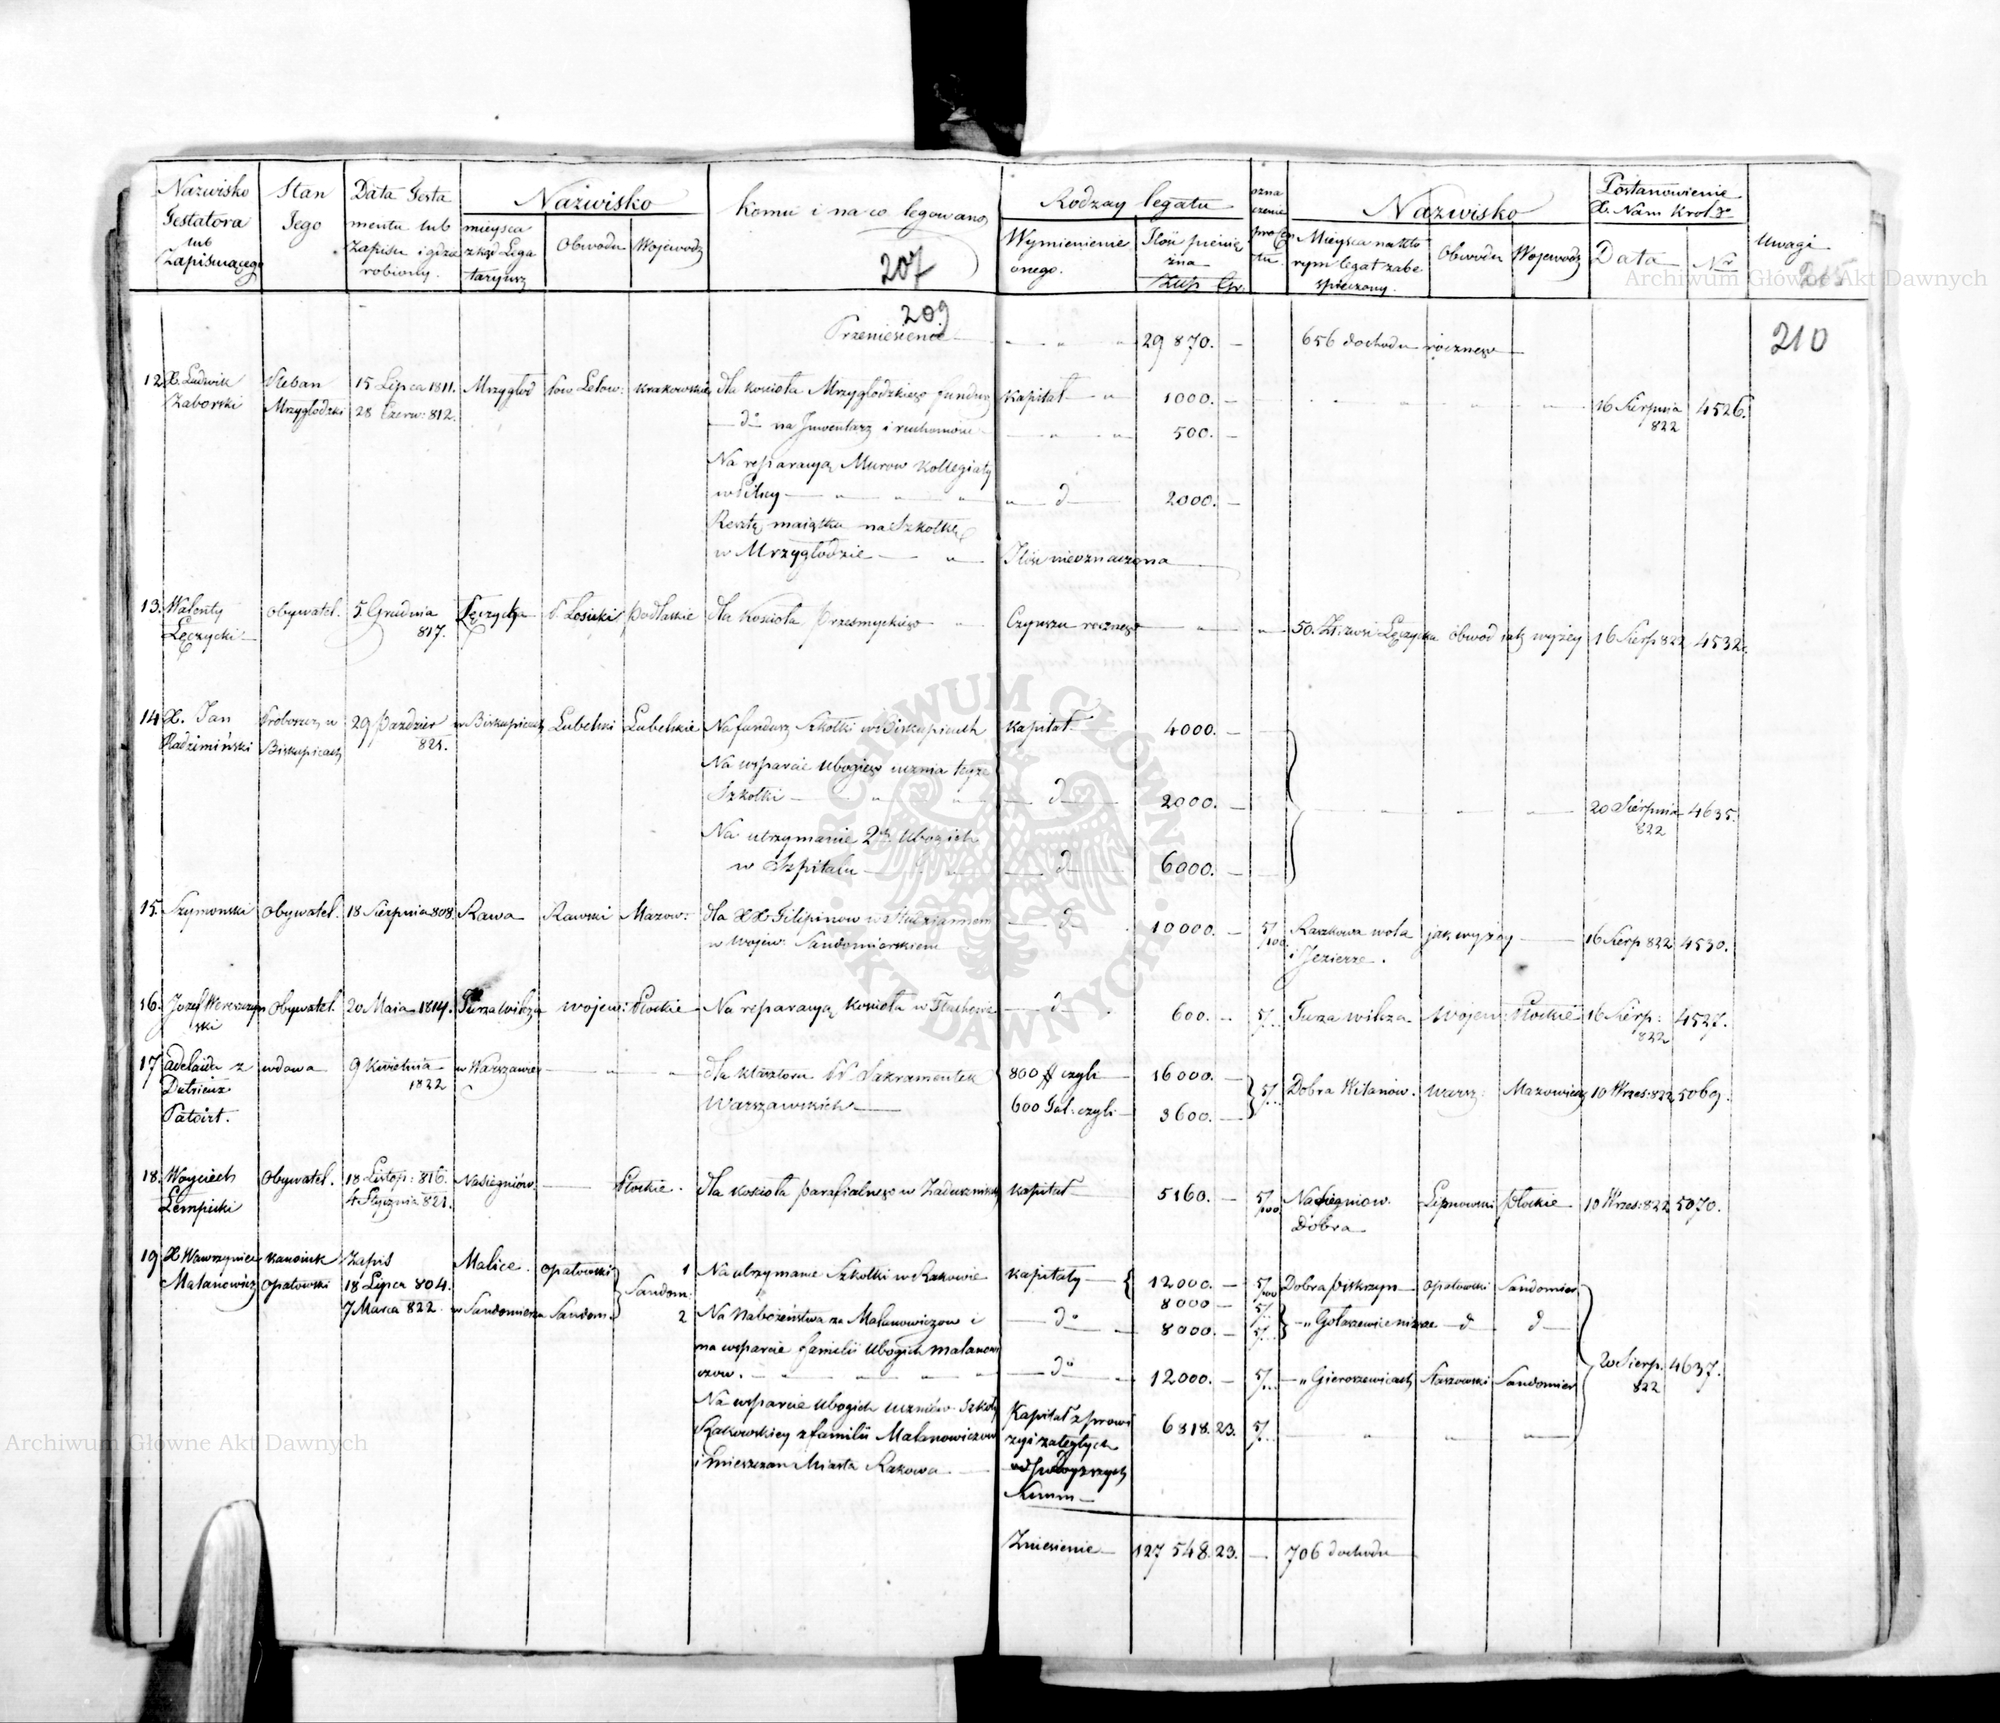 Nazwisko Testatora lub Zapisuiącego
Stan Jego
Data Testamentu lub Zapisu i gdzie robiony.
Nazwisko
mieysca zkąd Legataryusz
Obwodu
Wojewodz
Komu i na co legowano
207
Rodzay legatu
Wymienienie onego.
Ilość pieniężna
Złłp Gr.
oznaczenie procentu.
Nazwisko
Mieysca na którym legat zabespieczony.
Obwodu
Wojewodz
Postanowienie X. Nam Krol
Data
Nr
Uwagi
215
209
210
Przeniesienie 29 870. — 656 dochodu rocznego
12. X. Ludwik Pleban 15 Lipca 1811. Mrzygłod Pow Lelow: Krakowskie dla Kościoła Mrzygłodzkiego fundusz Kapitał 1000. —
Zaborski Mrzygłodzki 28 Czerw: 812. 16 Sierpnia 822 4526.
— do na Inwentarz i ruchomości 500. —
Na reparacyą Murow Kollegiaty
w Pilicy — do 2000. —
Resztę maiątku na Szkołkę
w Mrzygłodzie — Ilość nieoznaczona
13. Walenty Obywatel. 5 Grudnia Łęczycka P. Łosicki Podlaskie dla Kościoła Przesmyckiego Czynszu rocznego
Łęczycki 817. 50. Zł: z wsi Łęczycka obwod jak wyżey 16 Sierp 822 4532.
14. X. Jan Proboszcz w 29 Paździer w Biskupicach Lubelski Lubelskie Na fundusz Szkołki w Biskupicach Kapitał 4000. —
Radzimiński Biskupicach 821.
Na wsparcie Ubogiego ucznia teyże
Szkołki — do 2000. — 20 Sierpnia 822 4635.
Na utrzymanie 2ch Ubogich
w Szpitalu — do 6000. —
15. Szymonski Obywatel. 18 Sierpnia 808. Rawa Rawski Mazow: dla XX Filipinow w Studzianney — do 10000. — 5/100 Raszkowa wola jak wyżey 16 Sierp 822 4530.
w Wojew: Sandomierskiem i Jezierze.
16. Jozef Wereszczyn Obywatel. 20 Maia 1814. Turza wilcza wojew: Płockie Na reparacyą Kościoła w — do 600. — 5/ Turza wilcza. Wojew: Płockie 16 Sierp: 4527.
ski 822
17 Adelaida z wdowa 9 Kwietnia w Warszawie dla klasztoru W Sakramentek 800 # czyli 16000. —
Patoirt. 1822 Warszawskich 600 Tal: czyli 3600. — 5/ Dobra Wilanów. Warsz: Mazowiec 10 Wrzes: 822 5069.
18. Woyciech Obywatel. 18 Listop: 816. Nasiegniów. — Płockie. dla Kościoła parafialnego w Zaduszniki Kapitał 5160. — 5/100 Nasiegniow. Lipnowski Płockie 10 Wrzes: 822 5070.
Łempicki 4 Stycznia 821. Dobra
19. X Wawrzyniec Kanonik Zapis Malice. Opatowski 1 Na utrzymanie Szkołki w Rakowie Kapitały 12000. — 5/100 Dobra Piskrzyn Opatowski Sandomier
Malanowicz Opatowski 18 Lipca 804. Sandom. 8000 — 5/
7 Marca 822. w Sandomierzu Sandom. 2 Na Nabożeństwa za Malanowiczow i — do 8000. — 5/ — do do
na wsparcie familii Ubogich Malanowi
czow. — do 12000. — 5/ — Gieroszewicach Staszowski Sandomier 20 Sierp. 822 4637.
Na wsparcie Ubogich uczniów Szkoły Kapitał z prowi 6818. 23. 5/
Rakowskiey z familii Malanowiczow zyi zaległych
i Mieszczan Miasta Rakowa od powyższych
Summ
Zniesienie 127 548. 23. — 706 dochodu
Archiwum Główne Akt Dawnych
Archiwum Główne Akt Dawnych
ARCHIWUM GŁÓWNE AKT DAWNYCH